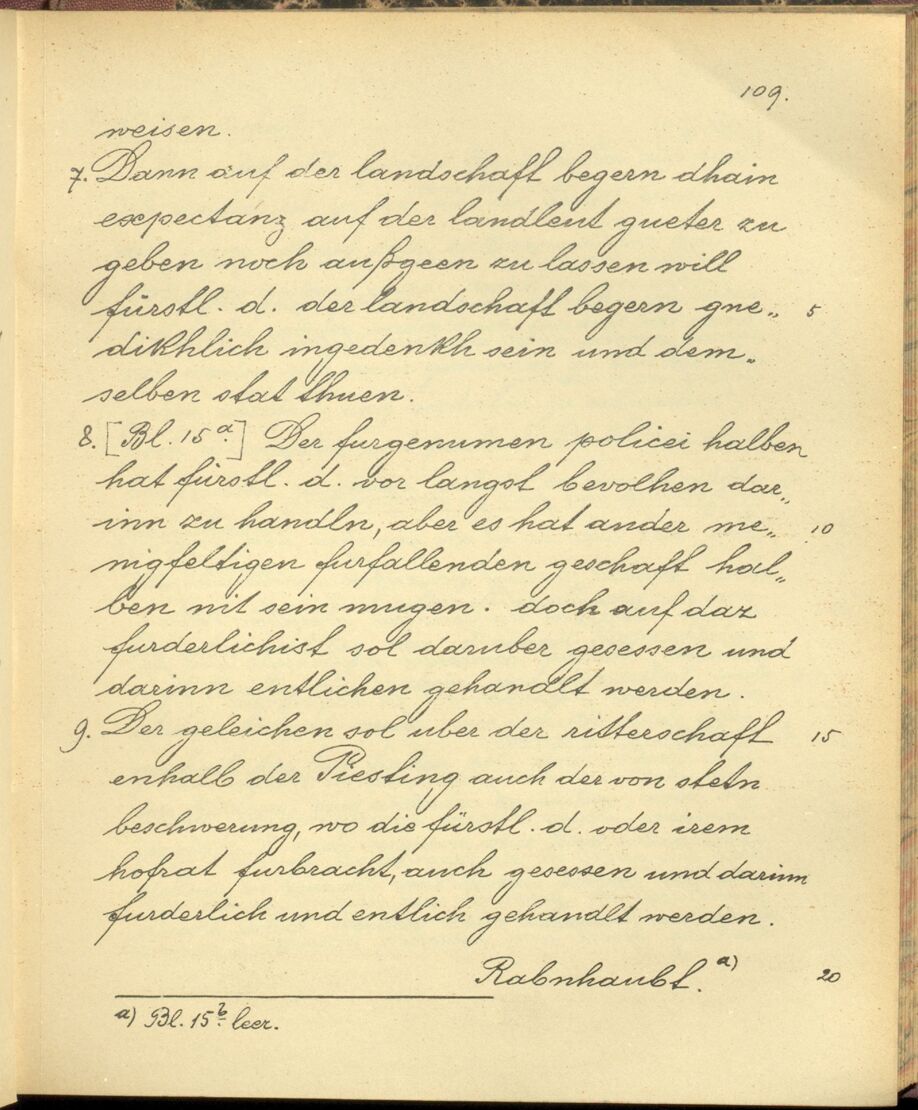 109.
weisen.
7. Dann auf der landschaft begern dhain
expectanz auf der landleut gueter zu
geben noch außgeen zu lassen will
fürstl. d. der landschaft begern gne„ 5
dikhlich ingedenkh sein und dem„
selben stat thuen.
8. [Bl. 15ª.] Der furgenumen policei halben
hat fürstl. d. vor langst bevolhen dar„
inn zu handln, aber es hat ander me„ 10
nigfeltigen furfallenden geschaft hal„
ben nit sein mugen. doch auf daz
furderlichist sol daruber gesessen und
darinn entlichen gehandlt werden.
9. Der geleichen sol uber der ritterschaft 15
enhalb der Piesting auch der von stetn
beschwerung, wo die fürstl. d. oder irem
hofrat furbracht, auch gesessen und darinn
furderlich und entlich gehandlt werden.
Rabnhaubt. a) 20
a) Bl. 15b. leer.